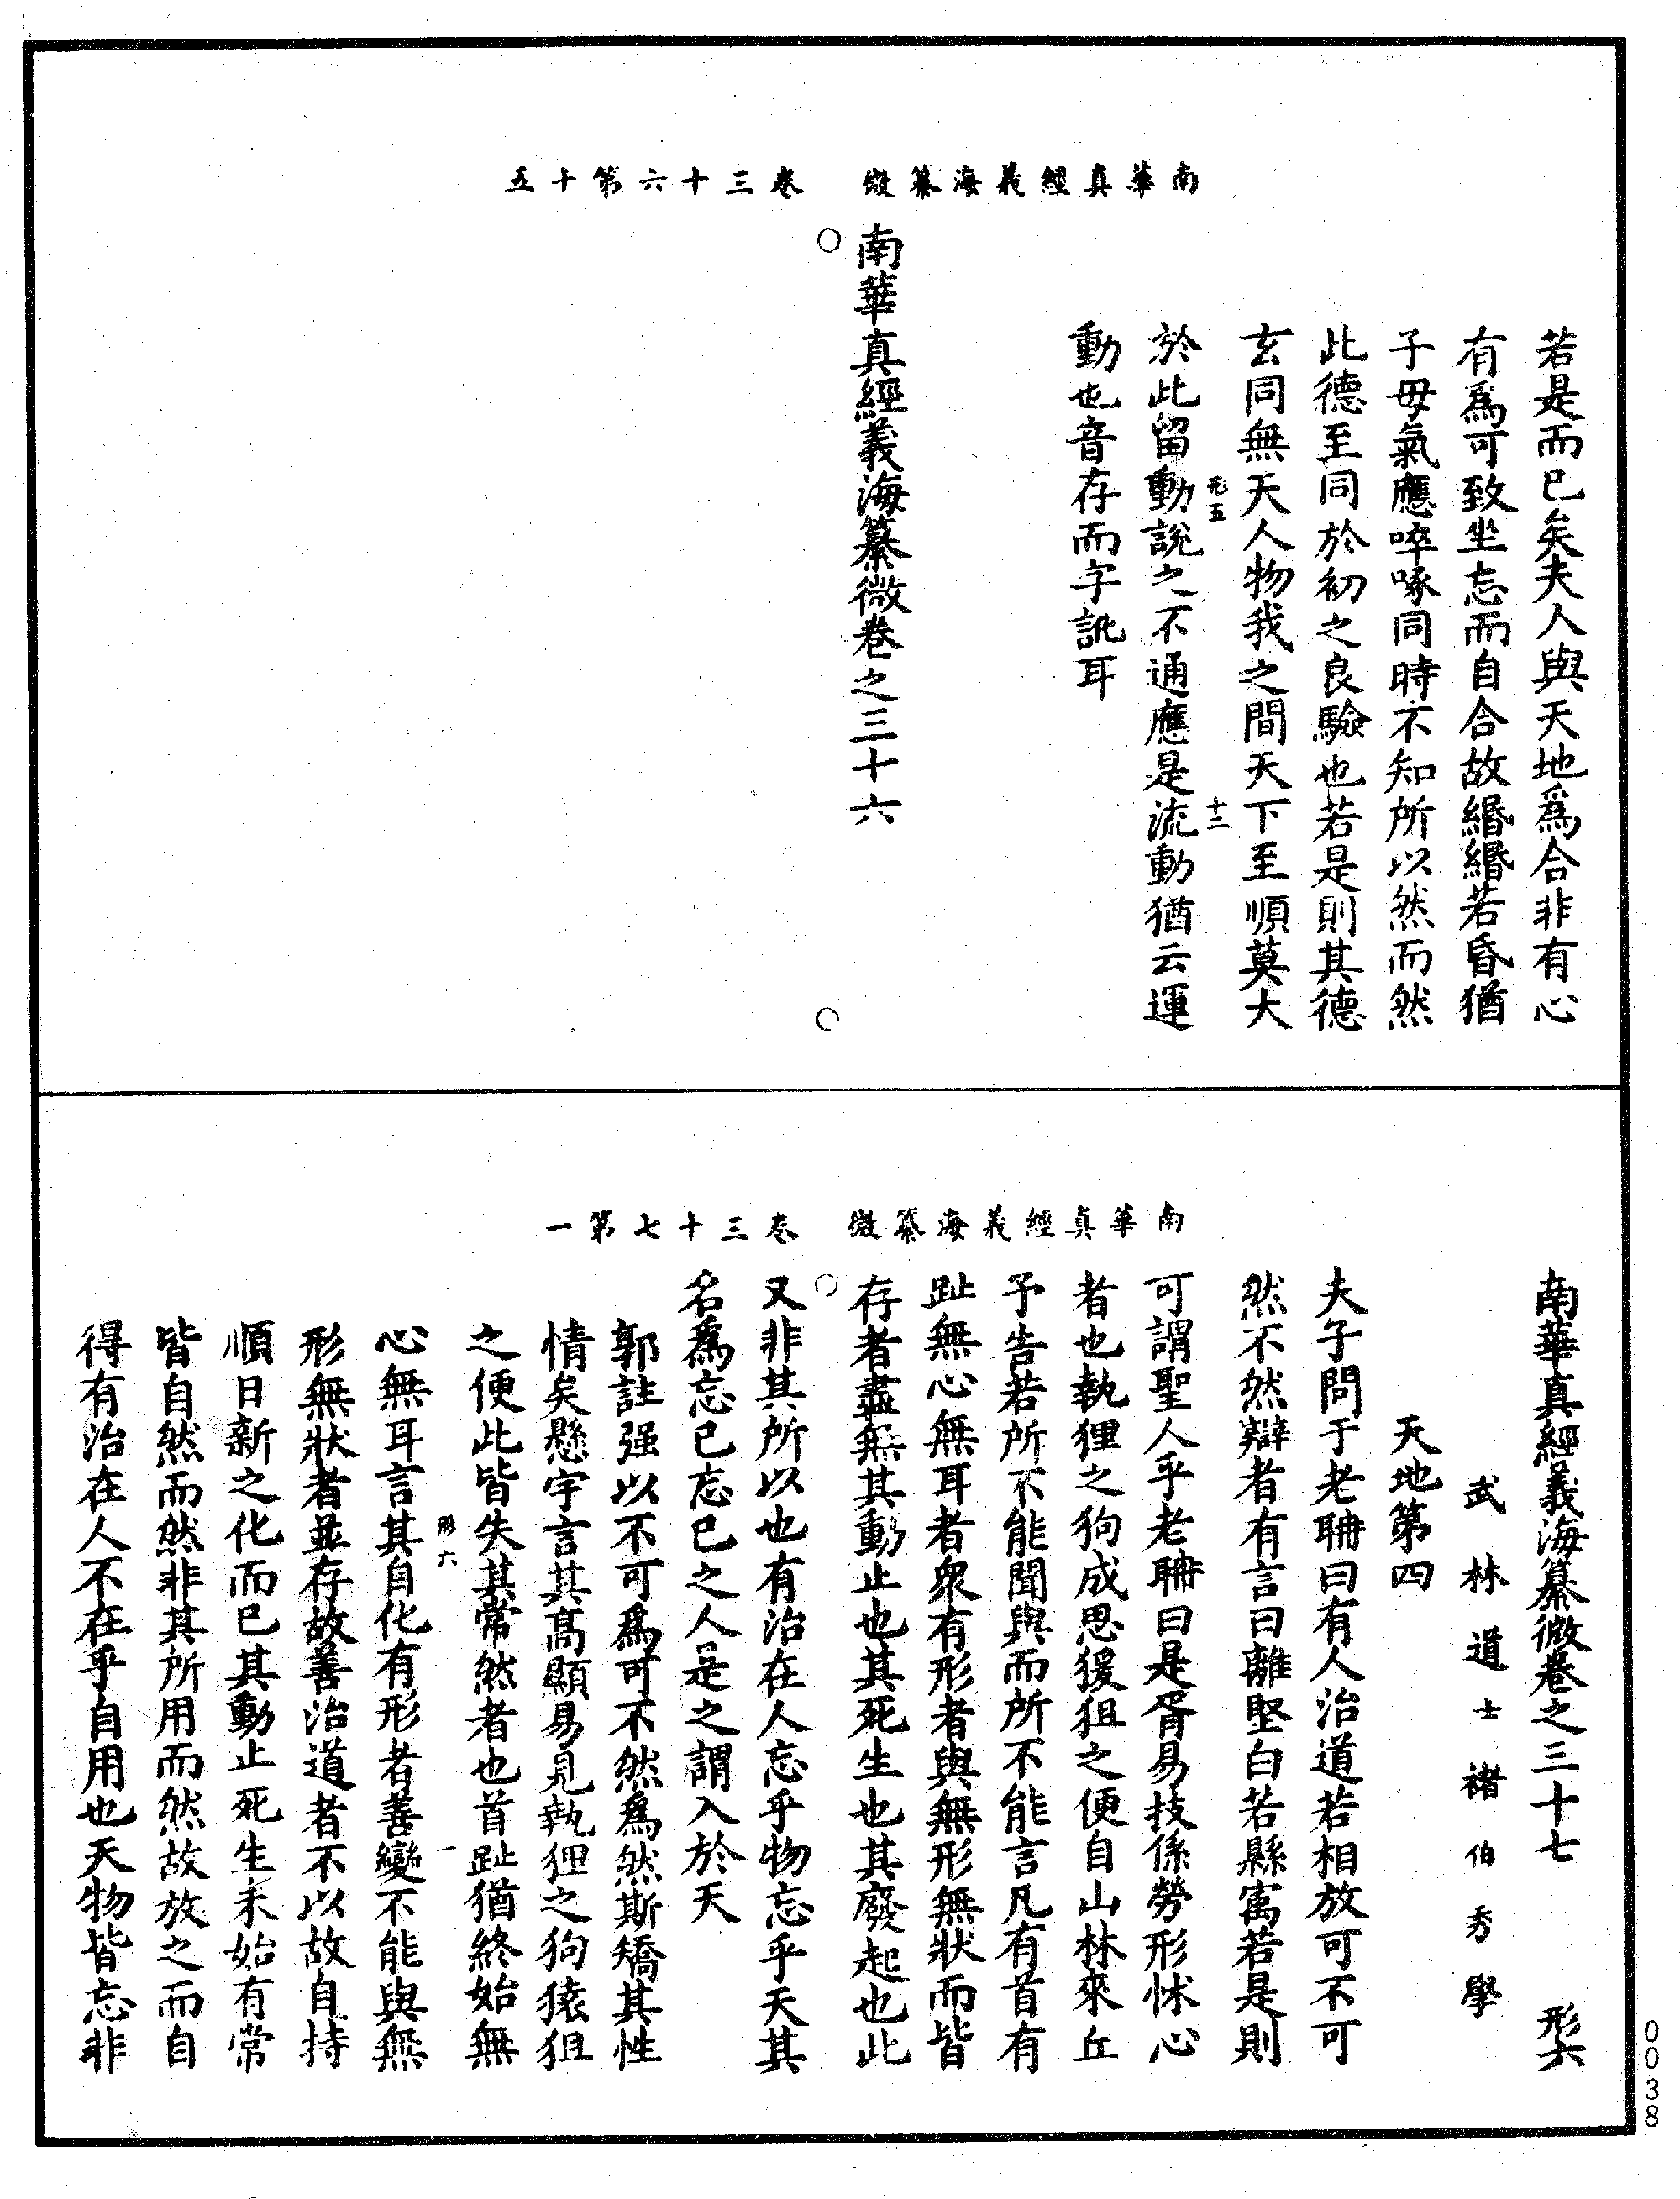 南華真經義海纂微　卷三十六第十五
若是而已矣夫人與天地爲合非有心
有爲可致坐忘而自合故緡緡若昏猶
子母氣應啐啄同時不知所以然而然
此德至同於初之良驗也若是則其德
玄同無天人物我之間天下至順莫大
形五　十二
於此留動說之不通應是流動猶云運
動也音存而字訛耳
南華真經義海纂微卷之三十六
南華真經義海纂微　卷三十七第一
南華真經義海纂微卷之三十七　形六
武林道士褚伯秀學
天地第四
夫子問于老聃曰有人治道若相放可不可
然不然辯者有言曰離堅白若縣寓若是則
可謂聖人乎老聃曰是胥易技係勞形怵心
者也執狸之狗成思猨狙之便自山林來丘
予告若所不能聞與而所不能言凡有首有
趾無心無耳者衆有形者與無形無狀而皆
存者盡無其動止也其死生也其廢起也此
又非其所以也有治在人忘乎物忘乎天其
名爲忘已忘已之人是之謂入於天
郭註强以不可爲可不然爲然斯矯其性
情矣懸宇言其高顯易見執狸之狗猿狙
之便此皆失其常然者也首趾猶終始無
形六　一
心無耳言其自化有形者善變不能與無
形無狀者並存故善治道者不以故自持
順日新之化而已其動止死生未始有常
皆自然而然非其所用而然故放之而自
得有治在人不在乎自用也天物皆忘非
0038